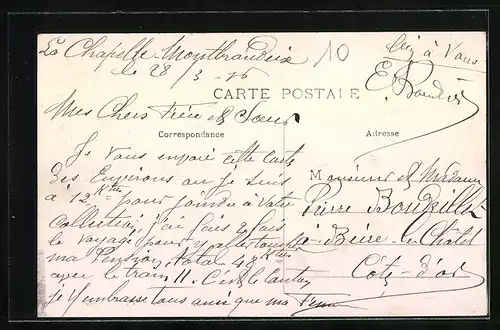 La Chapelle-Montbrandeix
le 28/3-26
10
bien à Vous
CARTE POSTALE
Mes Chers Frère et Sœur
Correspondance
Adresse
Je Vous envoie cette Carte
des Environs ou je suis
à 12 Ktres pour joindre à Votre
collection, j'ai fais 2 fois
le voyage pour y aller toucher
ma Pension. total 48 Ktres
avec le train 11. C'est le Canton
je Vs embrasse tous ainsi que ma
Monsieur et Madame
Pierre
à Beire le Châtel
Côte-d'or